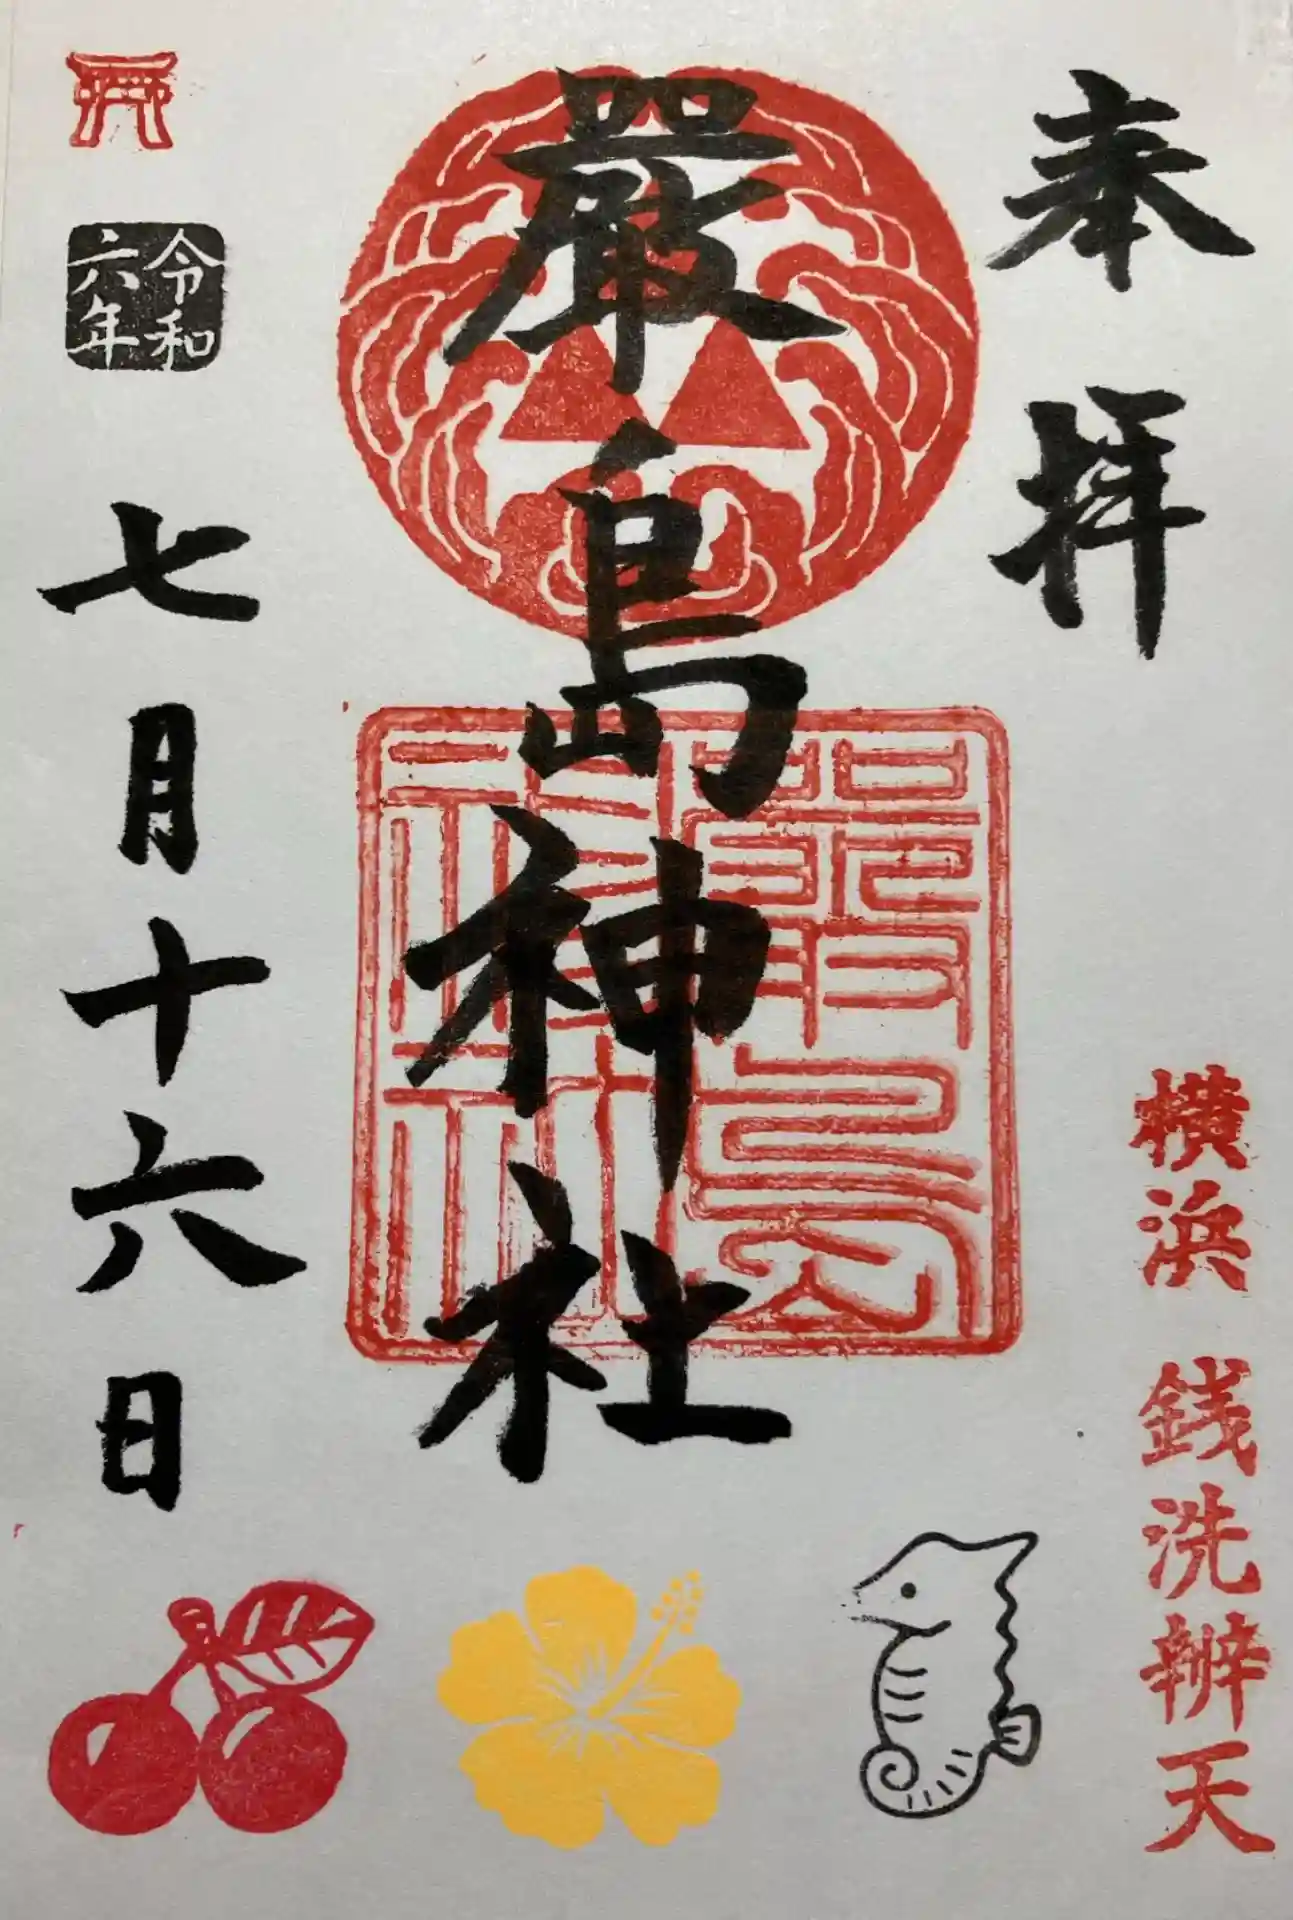 奉拝
横浜 銭洗辨天
嚴島神社
嚴島
神社
令和
六年
七月十六日